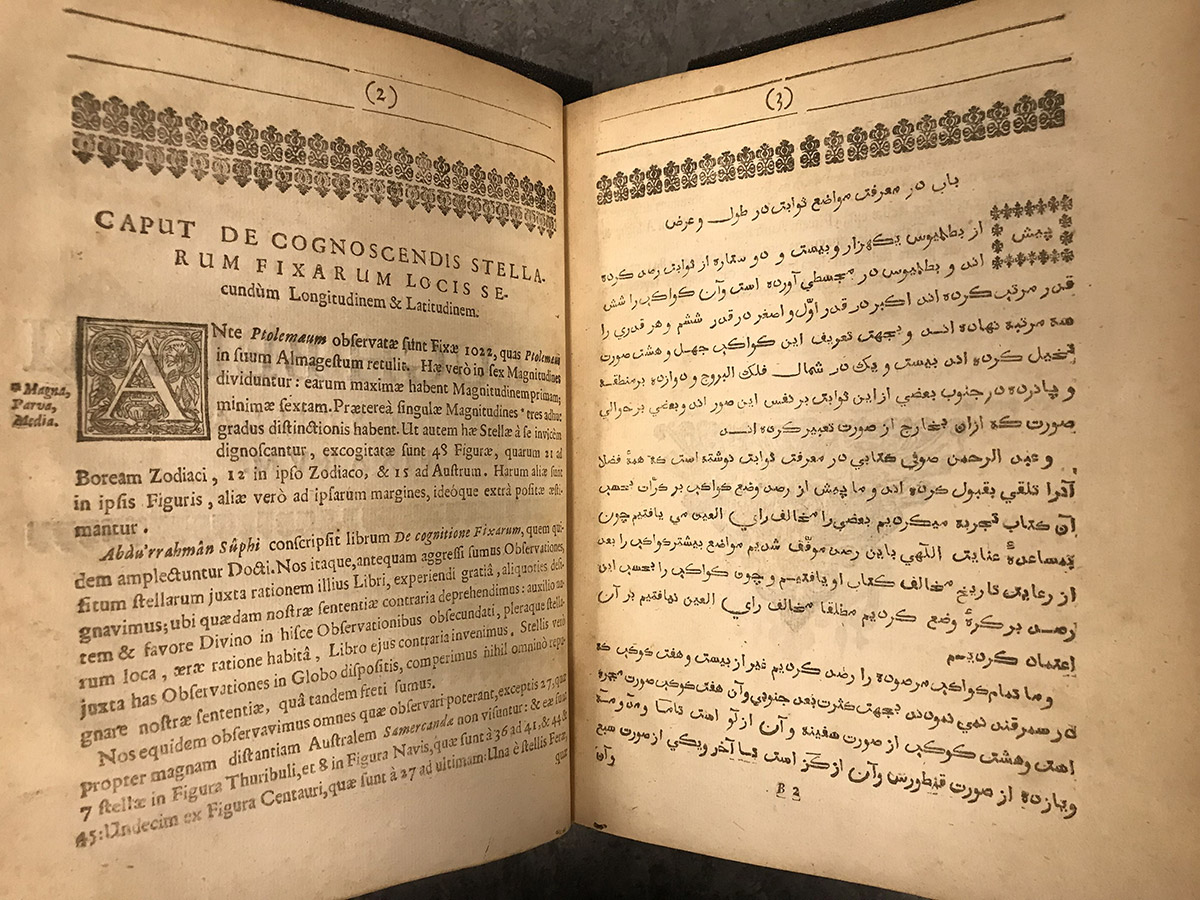 (2)
CAPUT DE COGNOSCENDIS STELLA-
RUM FIXARUM LOCIS SE-
cundùm Longitudinem & Latitudinem.
ANte Ptolemæum observatæ sunt Fixæ 1022, quas Ptolemæus
in suum Almagestum retulit. Hæ verò in sex Magnitudines
dividuntur: earum maximæ habent Magnitudinem primam;
minimæ sextam. Prætereà singulæ Magnitudines * tres adhuc
gradus distinctionis habent. Ut autem hæ Stellæ à se invicèm
dignoscantur, excogitatæ sunt 48 Figuræ, quarum 21 ad
Boream Zodiaci, 12 in ipso Zodiaco, & 15 ad Austrum. Harum aliæ sunt
in ipsis Figuris, aliæ verò ad ipsarum margines, ideóque extrà positæ æsti-
mantur.
* Magna,
Parva,
Media.
Abdu'rrahmân Sûphi conscripsit librum De cognitione Fixarum, quem qui-
dem amplectuntur Docti. Nos itaque, antequam aggressi sumus Observationes,
situm stellarum juxta rationem illius Libri, experiendi gratiâ, aliquoties desi-
gnavimus; ubi quædam nostræ sententiæ contraria deprehendimus: auxilio au-
tem & favore Divino in hisce Observationibus obsecundati, pleraque stella-
rum loca, æræ ratione habitâ, Libro ejus contraria invenimus. Stellis verò
juxta has Observationes in Globo dispositis, comperimus nihil omninò repu-
gnare nostræ sententiæ, quâ tandem freti sumus.
Nos equidem observavimus omnes quæ observari poterant, exceptis 27, quæ
propter magnam distantiam Australem Samercandæ non visuntur: & eæ sunt
7 stellæ in Figura Thuribuli, et 8 in Figura Navis, quæ sunt à 36 ad 41, & 44 &
45: Undecim ex Figura Centauri, quæ sunt à 27 ad ultimam: Una è stellis Feræ,
quæ
(3)
باب در معرفت مواضع ثوابت در طول و عرض
پیش از بطلمیوس یکهزار و بیست و دو ستاره از ثوابت رصد کرده
اند و بطلمیوس در مجسطی آورده است وآن کواکب را شش
قدر مرتب کرده اند اکبر در قدر اوّل و اصغر در قدر ششم و هر قدری را
سه مرتبه نهاده اند و بجهت تعریف این کواکب چهل و هشت صورت
تخیل کرده اند بیست و یک در شمال فلک البروج و دوازده بر منطقه
و پانزده در جنوب بعضی از این ثوابت بر نفس این صور اند و بعضی بر حوالی
صورت که ازان بخارج از صورت تعبیر کرده اند
و عبد الرحمن صوفی کتابی در معرفت ثوابت نوشته است که همهٔ فضلا
آنرا تلقی بقبول کرده اند و ما پیش از رصد وضع کواکب بر کرّان بحسب
آن کتاب تجربه میکردیم بعضی را مخالف رای العین می یافتیم چون
بمساعدهٔ عنایت اللهی باین رصد موفّف شدیم مواضع بیشتر کواکب را بعد
از رعایت تاریخ مخالف کتاب او یافتیم و چون کواکب را بحسب این
رصد بر کرهٔ وضع کردیم مطلقا مخالف رای العین نیافتیم بر آن
اعتماد کردیم
و ما تمام کواکب مرصوده را رصد کردیم غیر از بیست و هفت کوکب که
در سمرقند نمی نمودند بجهت کثرت بعد جنوبی وآن هفت کوکب صورت مجمره
است وهشت کوکب از صورت سفینه و آن از لو است تاما و مد و مه
ویازده از صورت قنطورس وآن از کز است تا آخر ویکی از صورت سبع
وآن
B 2